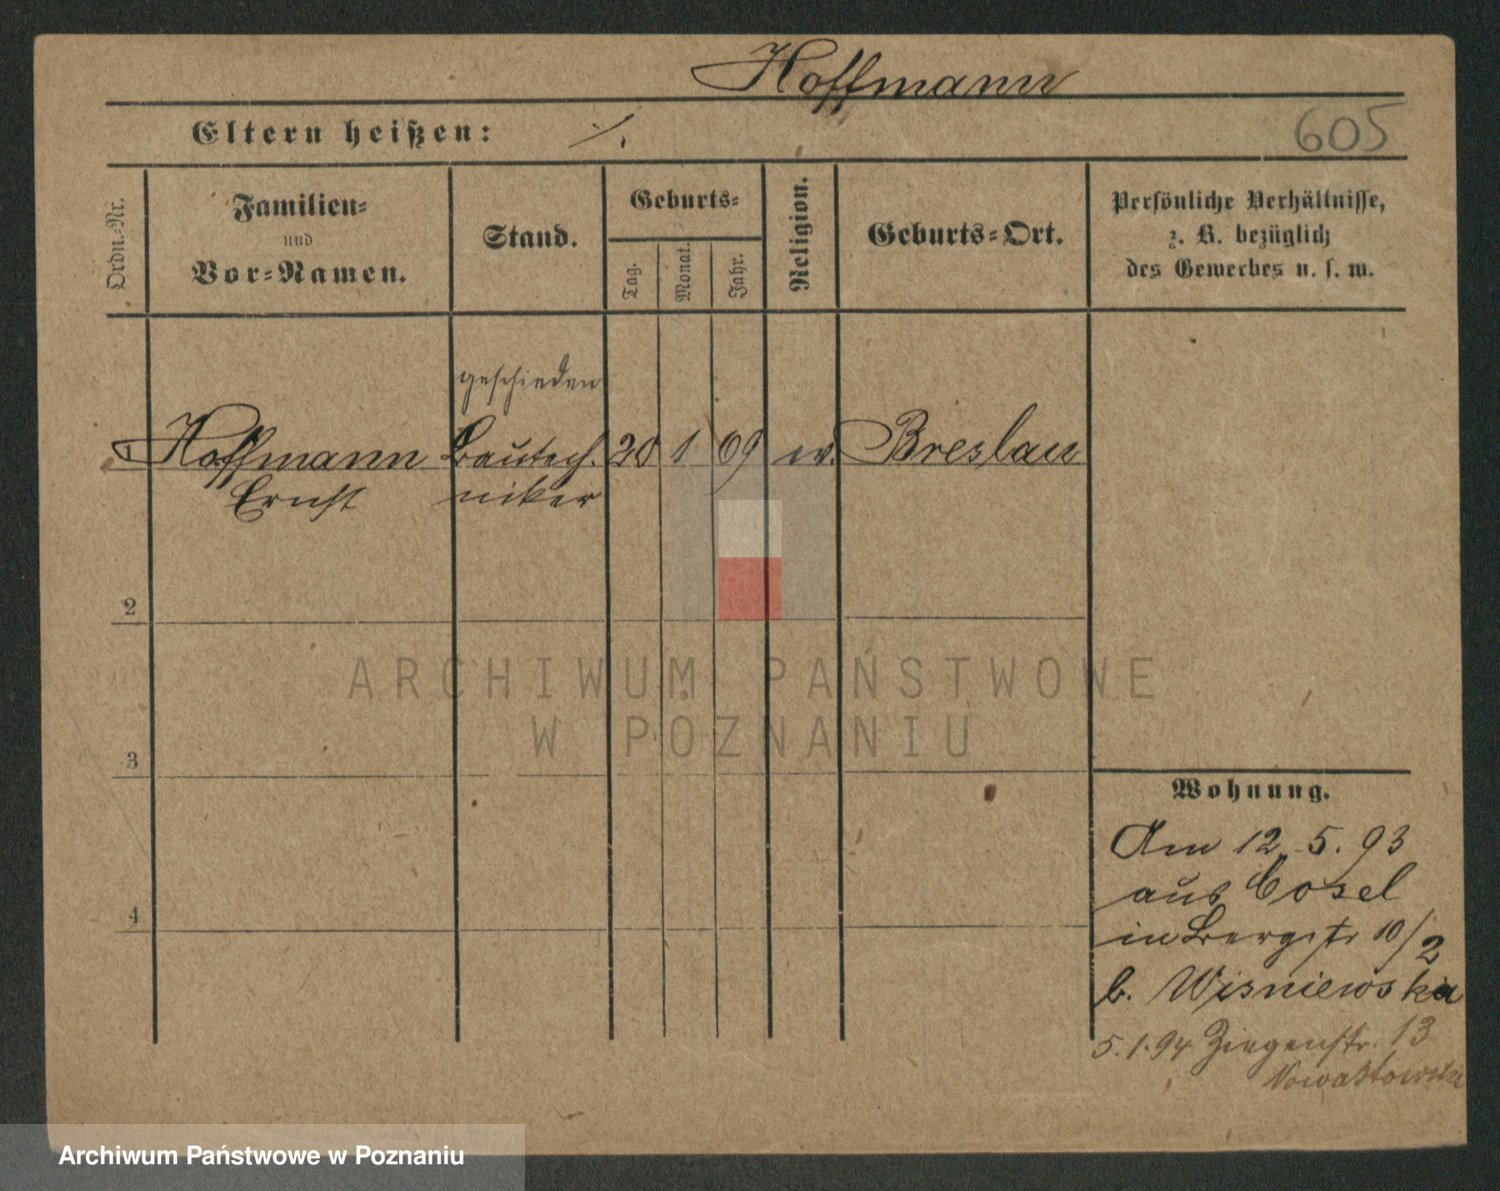 Hoffmann
Eltern heißen: ./.
605
Ordn.-Nr.
Familien-
und
Vor-Namen.
Stand.
Geburts-
Tag.
Monat.
Jahr.
Religion.
Geburts-Ort.
Persönliche Verhältnisse,
z. B. bezüglich
des Gewerbes u. s. w.
geschieden
Hoffmann Bautech. 1 69 Breslau
Ernst niker
2
3
4
Wohnung.
Am 12.5.93
aus Cosel
in Bergstr 10/2
b. Wisniewska
5.1.94 Ziegenstr. 13
ARCHIWUM PAŃSTWOWE
W POZNANIU
Archiwum Państwowe w Poznaniu